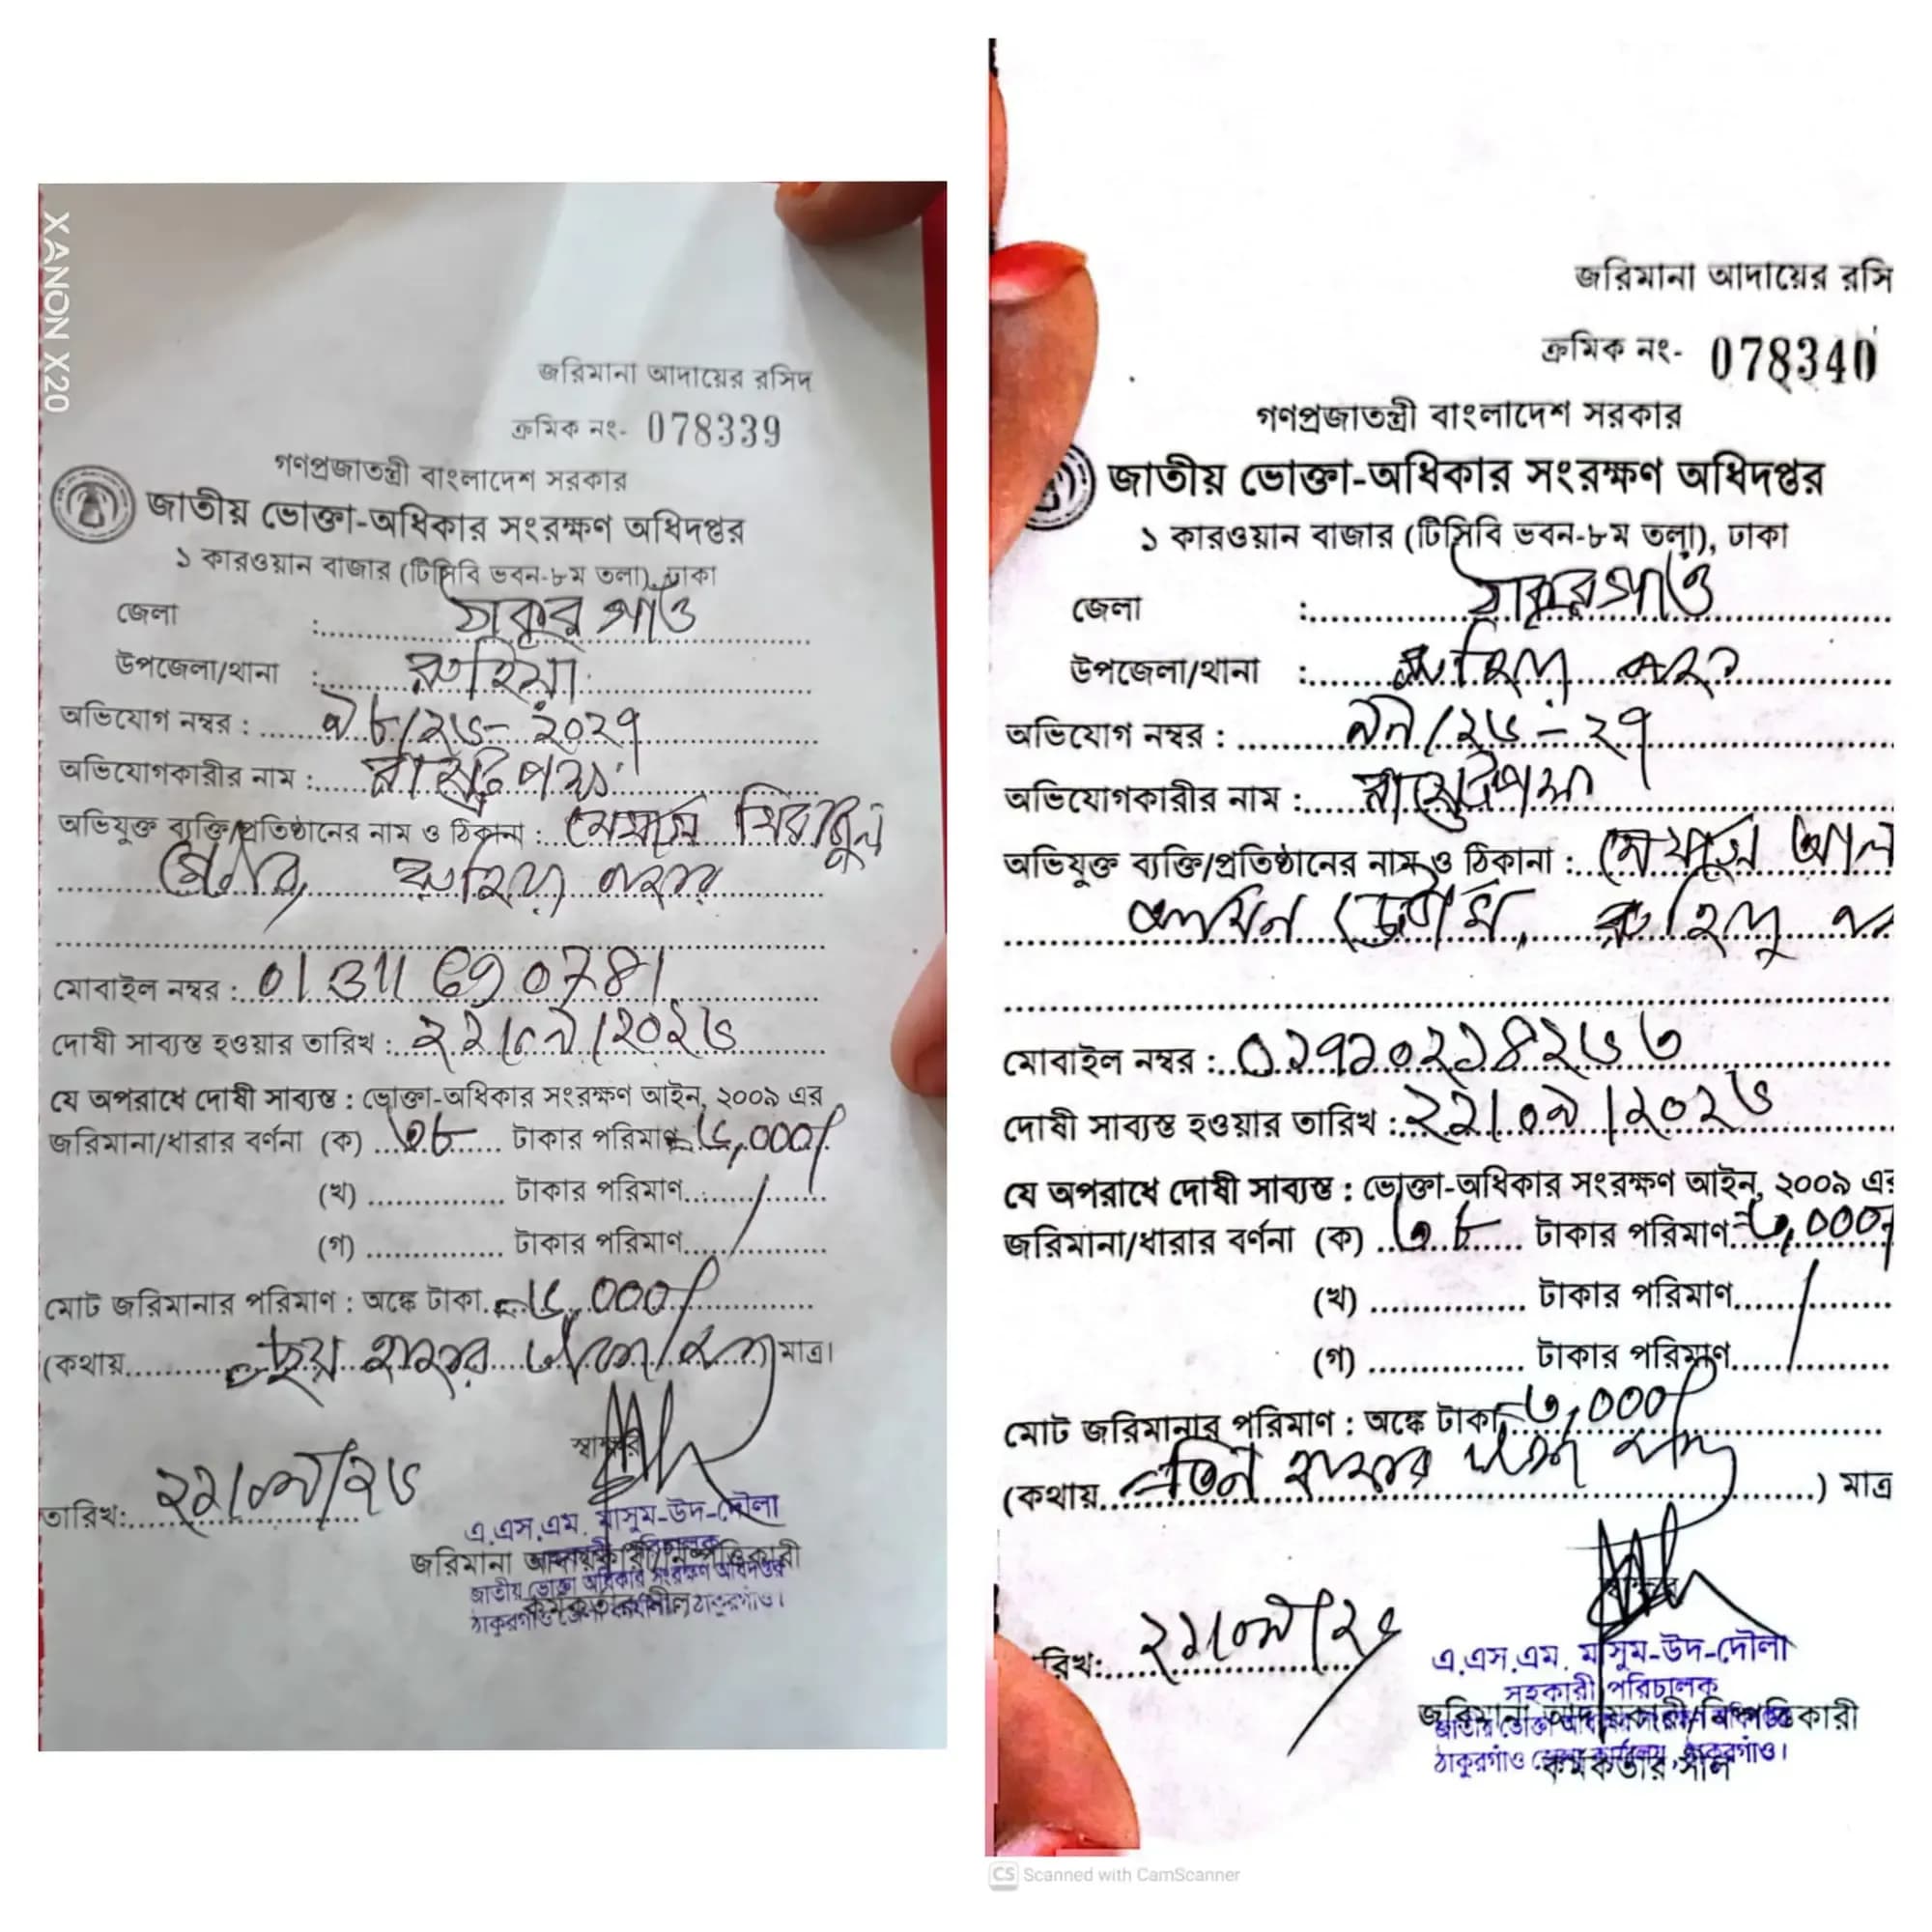 XANON X20
জরিমানা আদায়ের রসিদ
ক্রমিক নং- 078339
গণপ্রজাতন্ত্রী বাংলাদেশ সরকার
জাতীয় ভোক্তা-অধিকার সংরক্ষণ অধিদপ্তর
১ কারওয়ান বাজার (টিসিবি ভবন-৮ম তলা), ঢাকা
জেলা : ঠাকুরগাঁও
উপজেলা/থানা : রুহিয়া
অভিযোগ নম্বর : ৯৮/২৬-২০২৭
অভিযোগকারীর নাম : রাষ্ট্রপক্ষ
অভিযুক্ত ব্যক্তি/প্রতিষ্ঠানের নাম ও ঠিকানা : মেসার্স
স্টোর, রুহিয়া বাজার
মোবাইল নম্বর : 01311690781
দোষী সাব্যস্ত হওয়ার তারিখ : ২২/০৯/২০২৬
যে অপরাধে দোষী সাব্যস্ত : ভোক্তা-অধিকার সংরক্ষণ আইন, ২০০৯ এর
জরিমানা/ধারার বর্ণনা (ক) ৩৮ টাকার পরিমাণ ৬,০০০/
(খ) টাকার পরিমাণ
(গ) টাকার পরিমাণ
মোট জরিমানার পরিমাণ : অঙ্কে টাকা ৬,০০০/
(কথায় ছয় হাজার টাকা মাত্র) মাত্র।
স্বাক্ষর
তারিখ: ২২/০৯/২৬
এ.এস.এম. মাসুম-উদ-দৌলা
সহকারী পরিচালক
জরিমানা আদায়কারী/নিষ্পত্তিকারী
জাতীয় ভোক্তা অধিকার সংরক্ষণ অধিদপ্তর
কর্মকর্তার সীল
ঠাকুরগাঁও জেলা কার্যালয়, ঠাকুরগাঁও।
জরিমানা আদায়ের রসি
ক্রমিক নং- 078340
গণপ্রজাতন্ত্রী বাংলাদেশ সরকার
জাতীয় ভোক্তা-অধিকার সংরক্ষণ অধিদপ্তর
১ কারওয়ান বাজার (টিসিবি ভবন-৮ম তলা), ঢাকা
জেলা : ঠাকুরগাঁও
উপজেলা/থানা : রুহিয়া
অভিযোগ নম্বর : ৯৯/২৬-২৭
অভিযোগকারীর নাম : রাষ্ট্রপক্ষ
অভিযুক্ত ব্যক্তি/প্রতিষ্ঠানের নাম ও ঠিকানা : মেসার্স আল
আমিন স্টোর্স, রুহিয়া
মোবাইল নম্বর : ০১৭১০২১৪২৬৩
দোষী সাব্যস্ত হওয়ার তারিখ : ২২/০৯/২০২৬
যে অপরাধে দোষী সাব্যস্ত : ভোক্তা-অধিকার সংরক্ষণ আইন, ২০০৯ এর
জরিমানা/ধারার বর্ণনা (ক) ৩৮ টাকার পরিমাণ ৩,০০০/
(খ) টাকার পরিমাণ
(গ) টাকার পরিমাণ
মোট জরিমানার পরিমাণ : অঙ্কে টাকা ৩,০০০/
(কথায় তিন হাজার টাকা মাত্র) মাত্র
স্বাক্ষর
রিখ: ২২/০৯/২৬
এ.এস.এম. মাসুম-উদ-দৌলা
সহকারী পরিচালক
জরিমানা আদায়কারী/নিষ্পত্তিকারী
জাতীয় ভোক্তা অধিকার সংরক্ষণ অধিদপ্তর
ঠাকুরগাঁও জেলা কার্যালয়, ঠাকুরগাঁও।
কর্মকর্তার সীল
CS Scanned with CamScanner